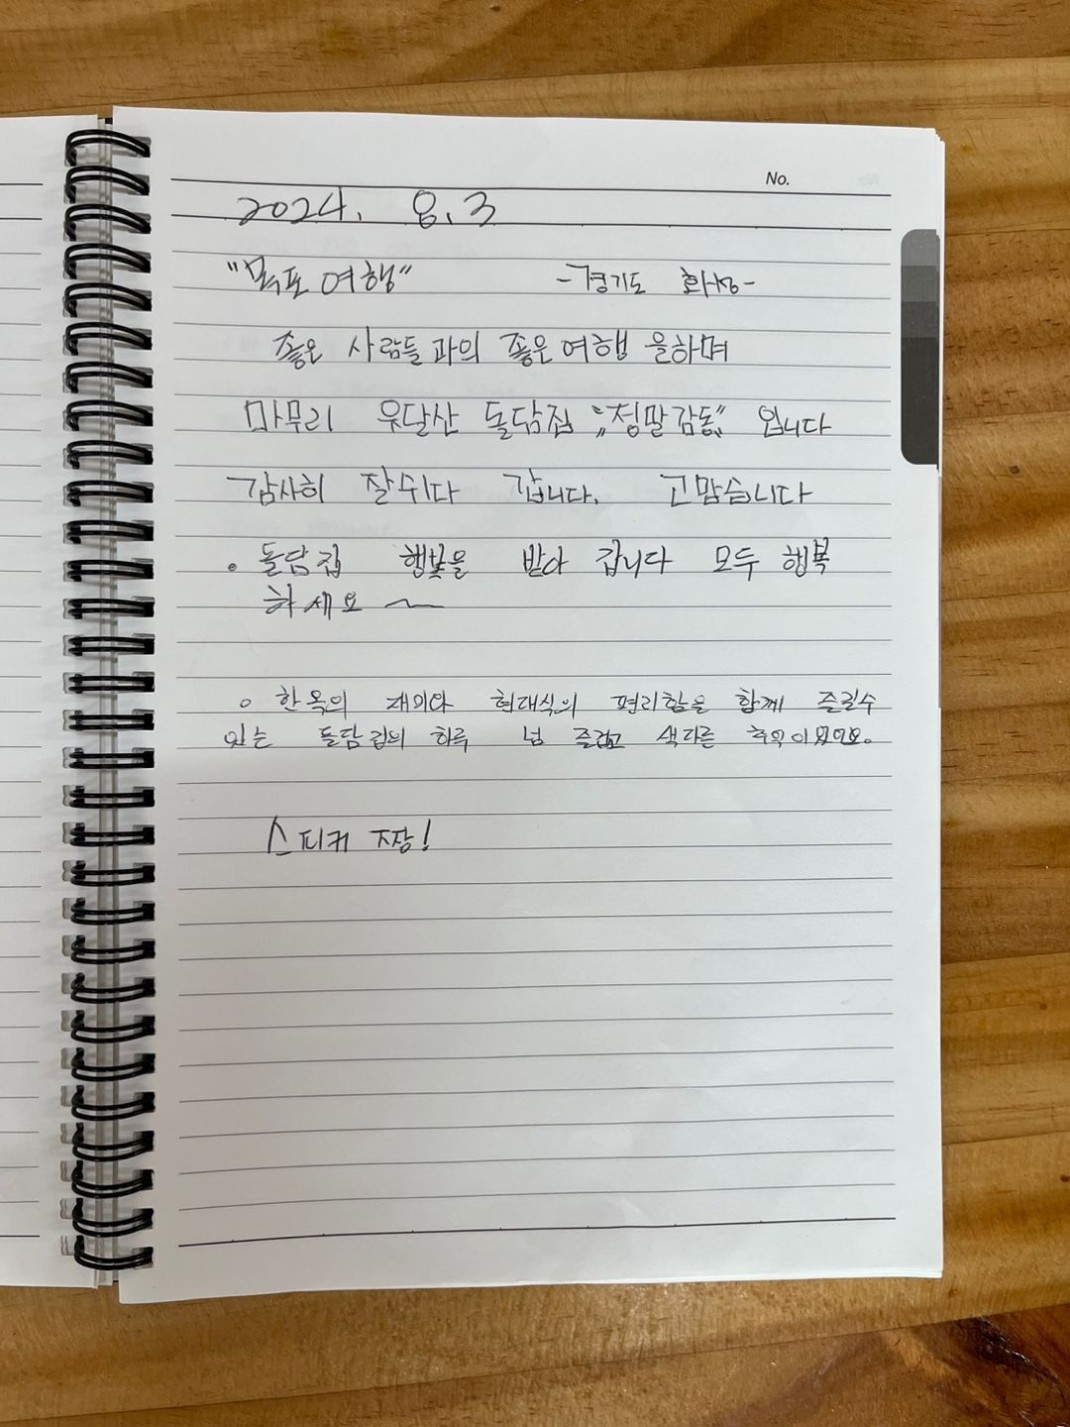 No.
2024. 8. 3
"목포 여행" -경기도 화성-
좋은 사람들과의 좋은여행 을하며
마무리 우달산 돌담집 "정말감동" 입니다
감사히 잘쉬다 갑니다. 고맙습니다
• 돌담집 행복을 받아 갑니다 모두 행복
하세요 ~
○ 한옥의 재미와 현대식의 편리함을 함께 즐길수
있는 돌담집의 하루 넘 즐겁고 색다른 추억이었어요.
스티커 짱!